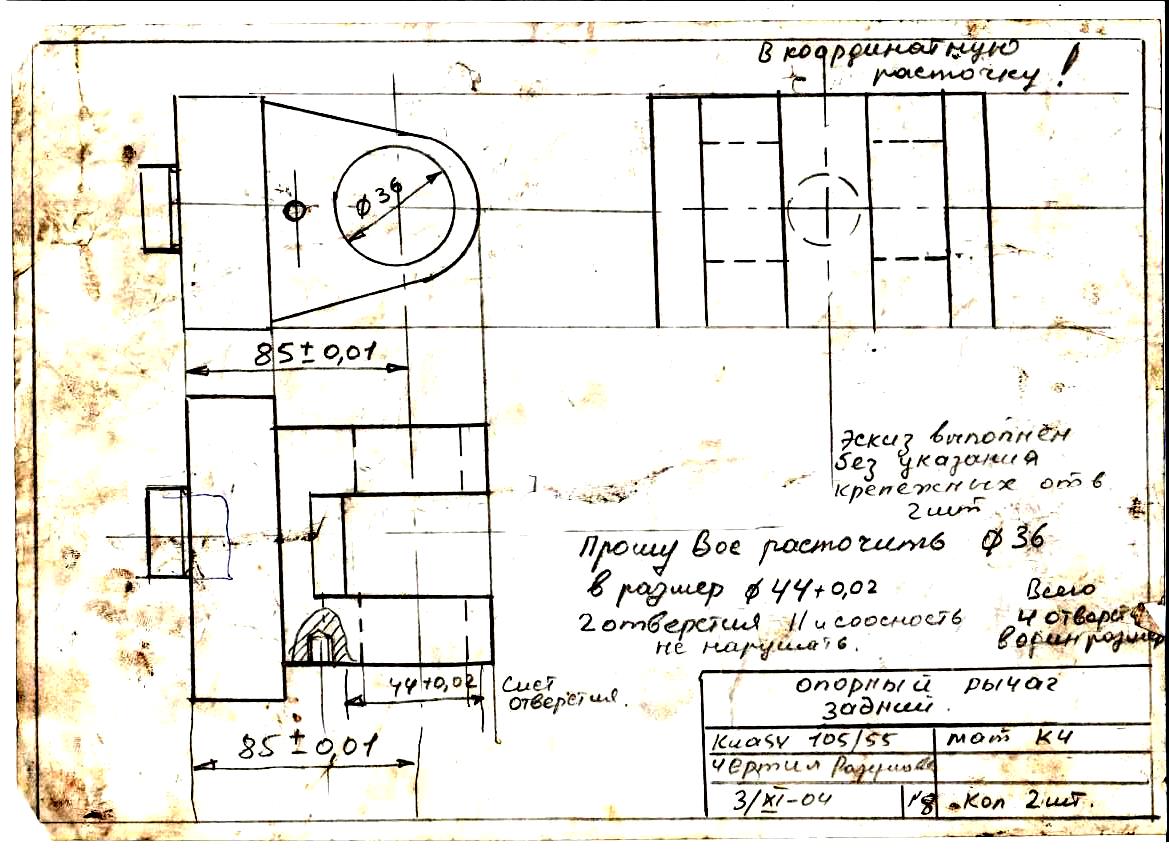 В координатную
расточку !
ф 36
85 ± 0,01
Эскиз выполнен
без указания
крепежных отв
2 шт
Прошу Вас расточить ф 36
в размер ф 44+0,02
2 отверстия // и соосность
не нарушать.
Всего
4 отверст
в один размер
44+0,02
Сист
отверстия.
85 ± 0,01
опорный рычаг
задний.
105/55
мат К4
чертил
3/XI-04
№8
Кол 2 шт.